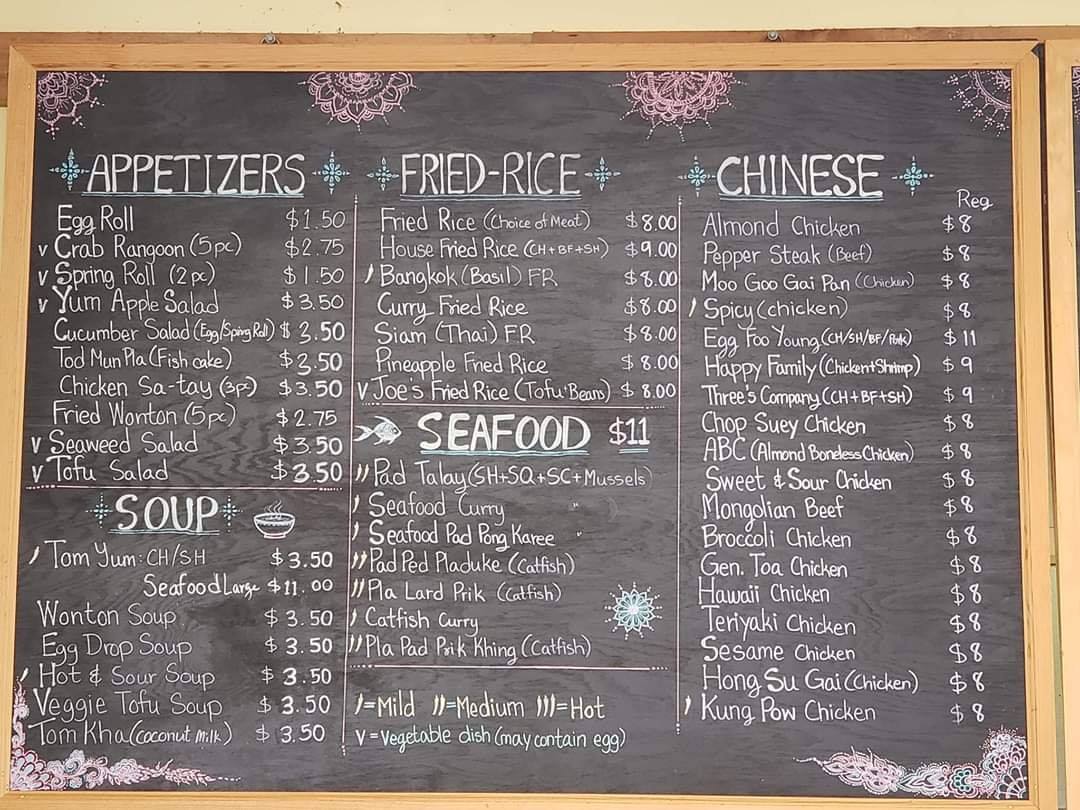 APPETIZERS
Egg Roll $1.50
v Crab Rangoon (5pc) $2.75
v Spring Roll (2 pc) $1.50
v Yum Apple Salad $3.50
Cucumber Salad (Egg/Spring Roll) $3.50
Tod Mun Pla (Fish cake) $3.50
Chicken Sa-tay (3pc) $3.50
Fried Wonton (5pc) $2.75
v Seaweed Salad $3.50
v Tofu Salad $3.50
SOUP
Tom Yum: CH/SH $3.50
Seafood Large $11.00
Wonton Soup $3.50
Egg Drop Soup $3.50
Hot & Sour Soup $3.50
Veggie Tofu Soup $3.50
Tom Kha (coconut milk) $3.50
FRIED-RICE
Fried Rice (Choice of Meat) $8.00
House Fried Rice (CH+BF+SH) $9.00
Bangkok (Basil) FR $8.00
Curry Fried Rice $8.00
Siam (Thai) FR $8.00
Pineapple Fried Rice $8.00
v Joe's Fried Rice (Tofu & Beans) $8.00
SEAFOOD $11
Pad Talay (SH+SQ+SC+Mussels)
Seafood Curry "
Seafood Pad Pong Karee "
Pad Ped Pladuke (Catfish)
Pla Lard Prik (Catfish)
Catfish Curry
Pla Pad Prik Khing (Catfish)
=Mild =Medium =Hot
v = Vegetable dish (may contain egg)
CHINESE
Reg
Almond Chicken $8
Pepper Steak (Beef) $8
Moo Goo Gai Pan (Chicken) $8
Spicy (chicken) $8
Egg Foo Young (CH/SH/BF/Pork) $11
Happy Family (Chicken+Shrimp) $9
Three's Company (CH+BF+SH) $9
Chop Suey Chicken $8
ABC (Almond Boneless Chicken) $8
Sweet & Sour Chicken $8
Mongolian Beef $8
Broccoli Chicken $8
Gen. Toa Chicken $8
Hawaii Chicken $8
Teriyaki Chicken $8
Sesame Chicken $8
Hong Su Gai (Chicken) $8
Kung Pow Chicken $8